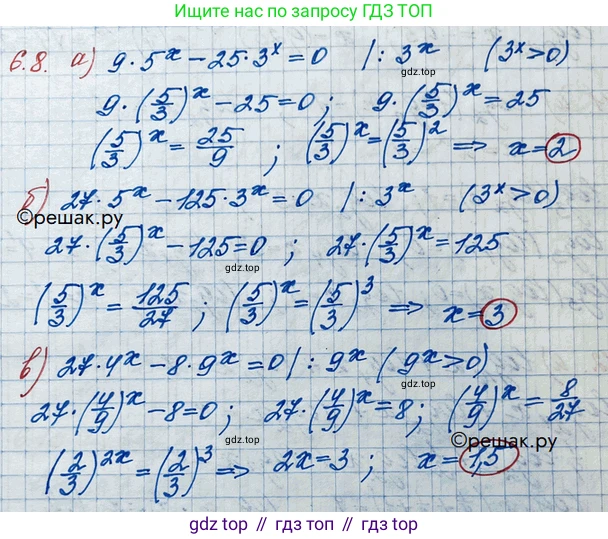 Ищите нас по запросу ГДЗ ТОП
6.8. а) 9·5^x − 25·3^x = 0 |: 3^x (3^x > 0)
gdz.top
9·(5/3)^x − 25 = 0; 9·(5/3)^x = 25
(5/3)^x = 25/9; (5/3)^x = (5/3)^2 ⇒ x = 2
б) 27·5^x − 125·3^x = 0 |: 3^x (3^x > 0)
©решак.ру
27·(5/3)^x − 125 = 0; 27·(5/3)^x = 125
gdz.top
(5/3)^x = 125/27; (5/3)^x = (5/3)^3 ⇒ x = 3
в) 27·4^x − 8·9^x = 0 |: 9^x (9^x > 0)
27·(4/9)^x − 8 = 0; 27·(4/9)^x = 8; (4/9)^x = 8/27
gdz.top
©решак.ру
(2/3)^2x = (2/3)^3 ⇒ 2x = 3; x = 1,5
gdz top // гдз топ // gdz.top